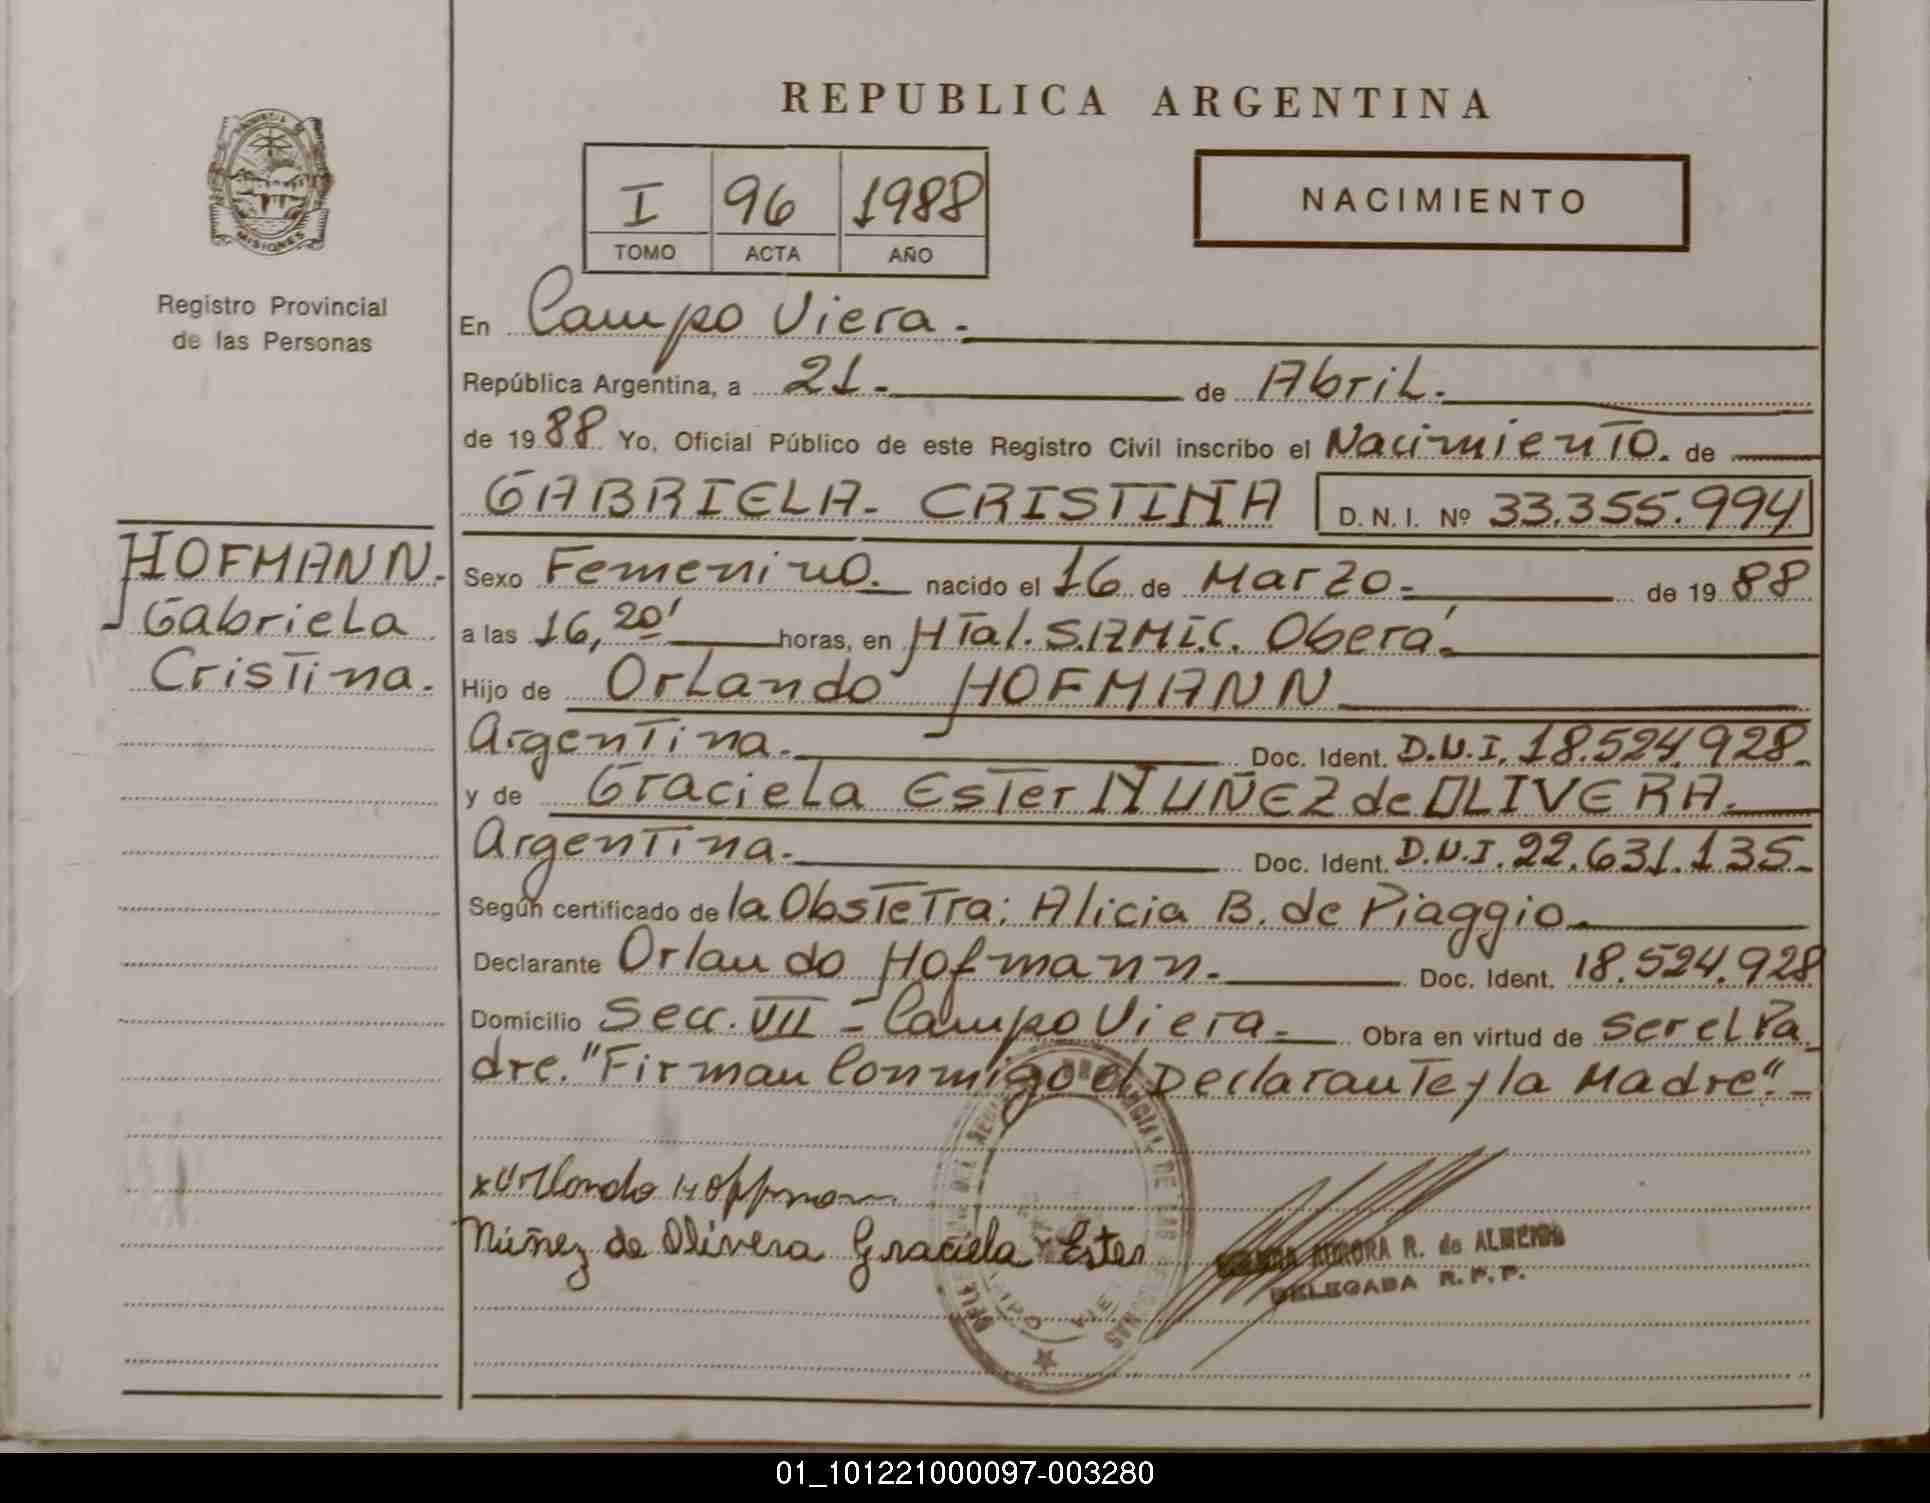 REPUBLICA ARGENTINA
PROVINCIA DE
MISIONES
Registro Provincial
de las Personas
I 96 1988
TOMO ACTA AÑO
NACIMIENTO
En Campo Viera.
República Argentina, a 21. de Abril.
de 1988 Yo, Oficial Público de este Registro Civil inscribo el Nacimiento. de
GABRIELA. CRISTINA D. N. I. Nº 33.355.994
HOFMANN.
Gabriela
Cristina.
Sexo Femenino. nacido el 16 de Marzo. de 1988
a las 16,20' horas, en HTal. S.A.M.I.C. Oberá.
Hijo de Orlando HOFMANN
Argentina. Doc. Ident. D.N.I. 18.524.928.
y de Graciela Ester NUÑEZ de OLIVERA.
Argentina. Doc. Ident. D.N.I. 22.631.135.
Según certificado de la Obstetra: Alicia B. de Piaggio.
Declarante Orlando Hofmann. Doc. Ident. 18.524.928
Domicilio Secc. VII - Campo Viera. Obra en virtud de ser el Pa
dre. "Firman Conmigo el Declarante y la Madre".
x Orlando Hoffman
Núñez de Olivera Graciela Ester
AURORA R. de ALMEIDA
DELEGADA R. P. P.
01_101221000097-003280